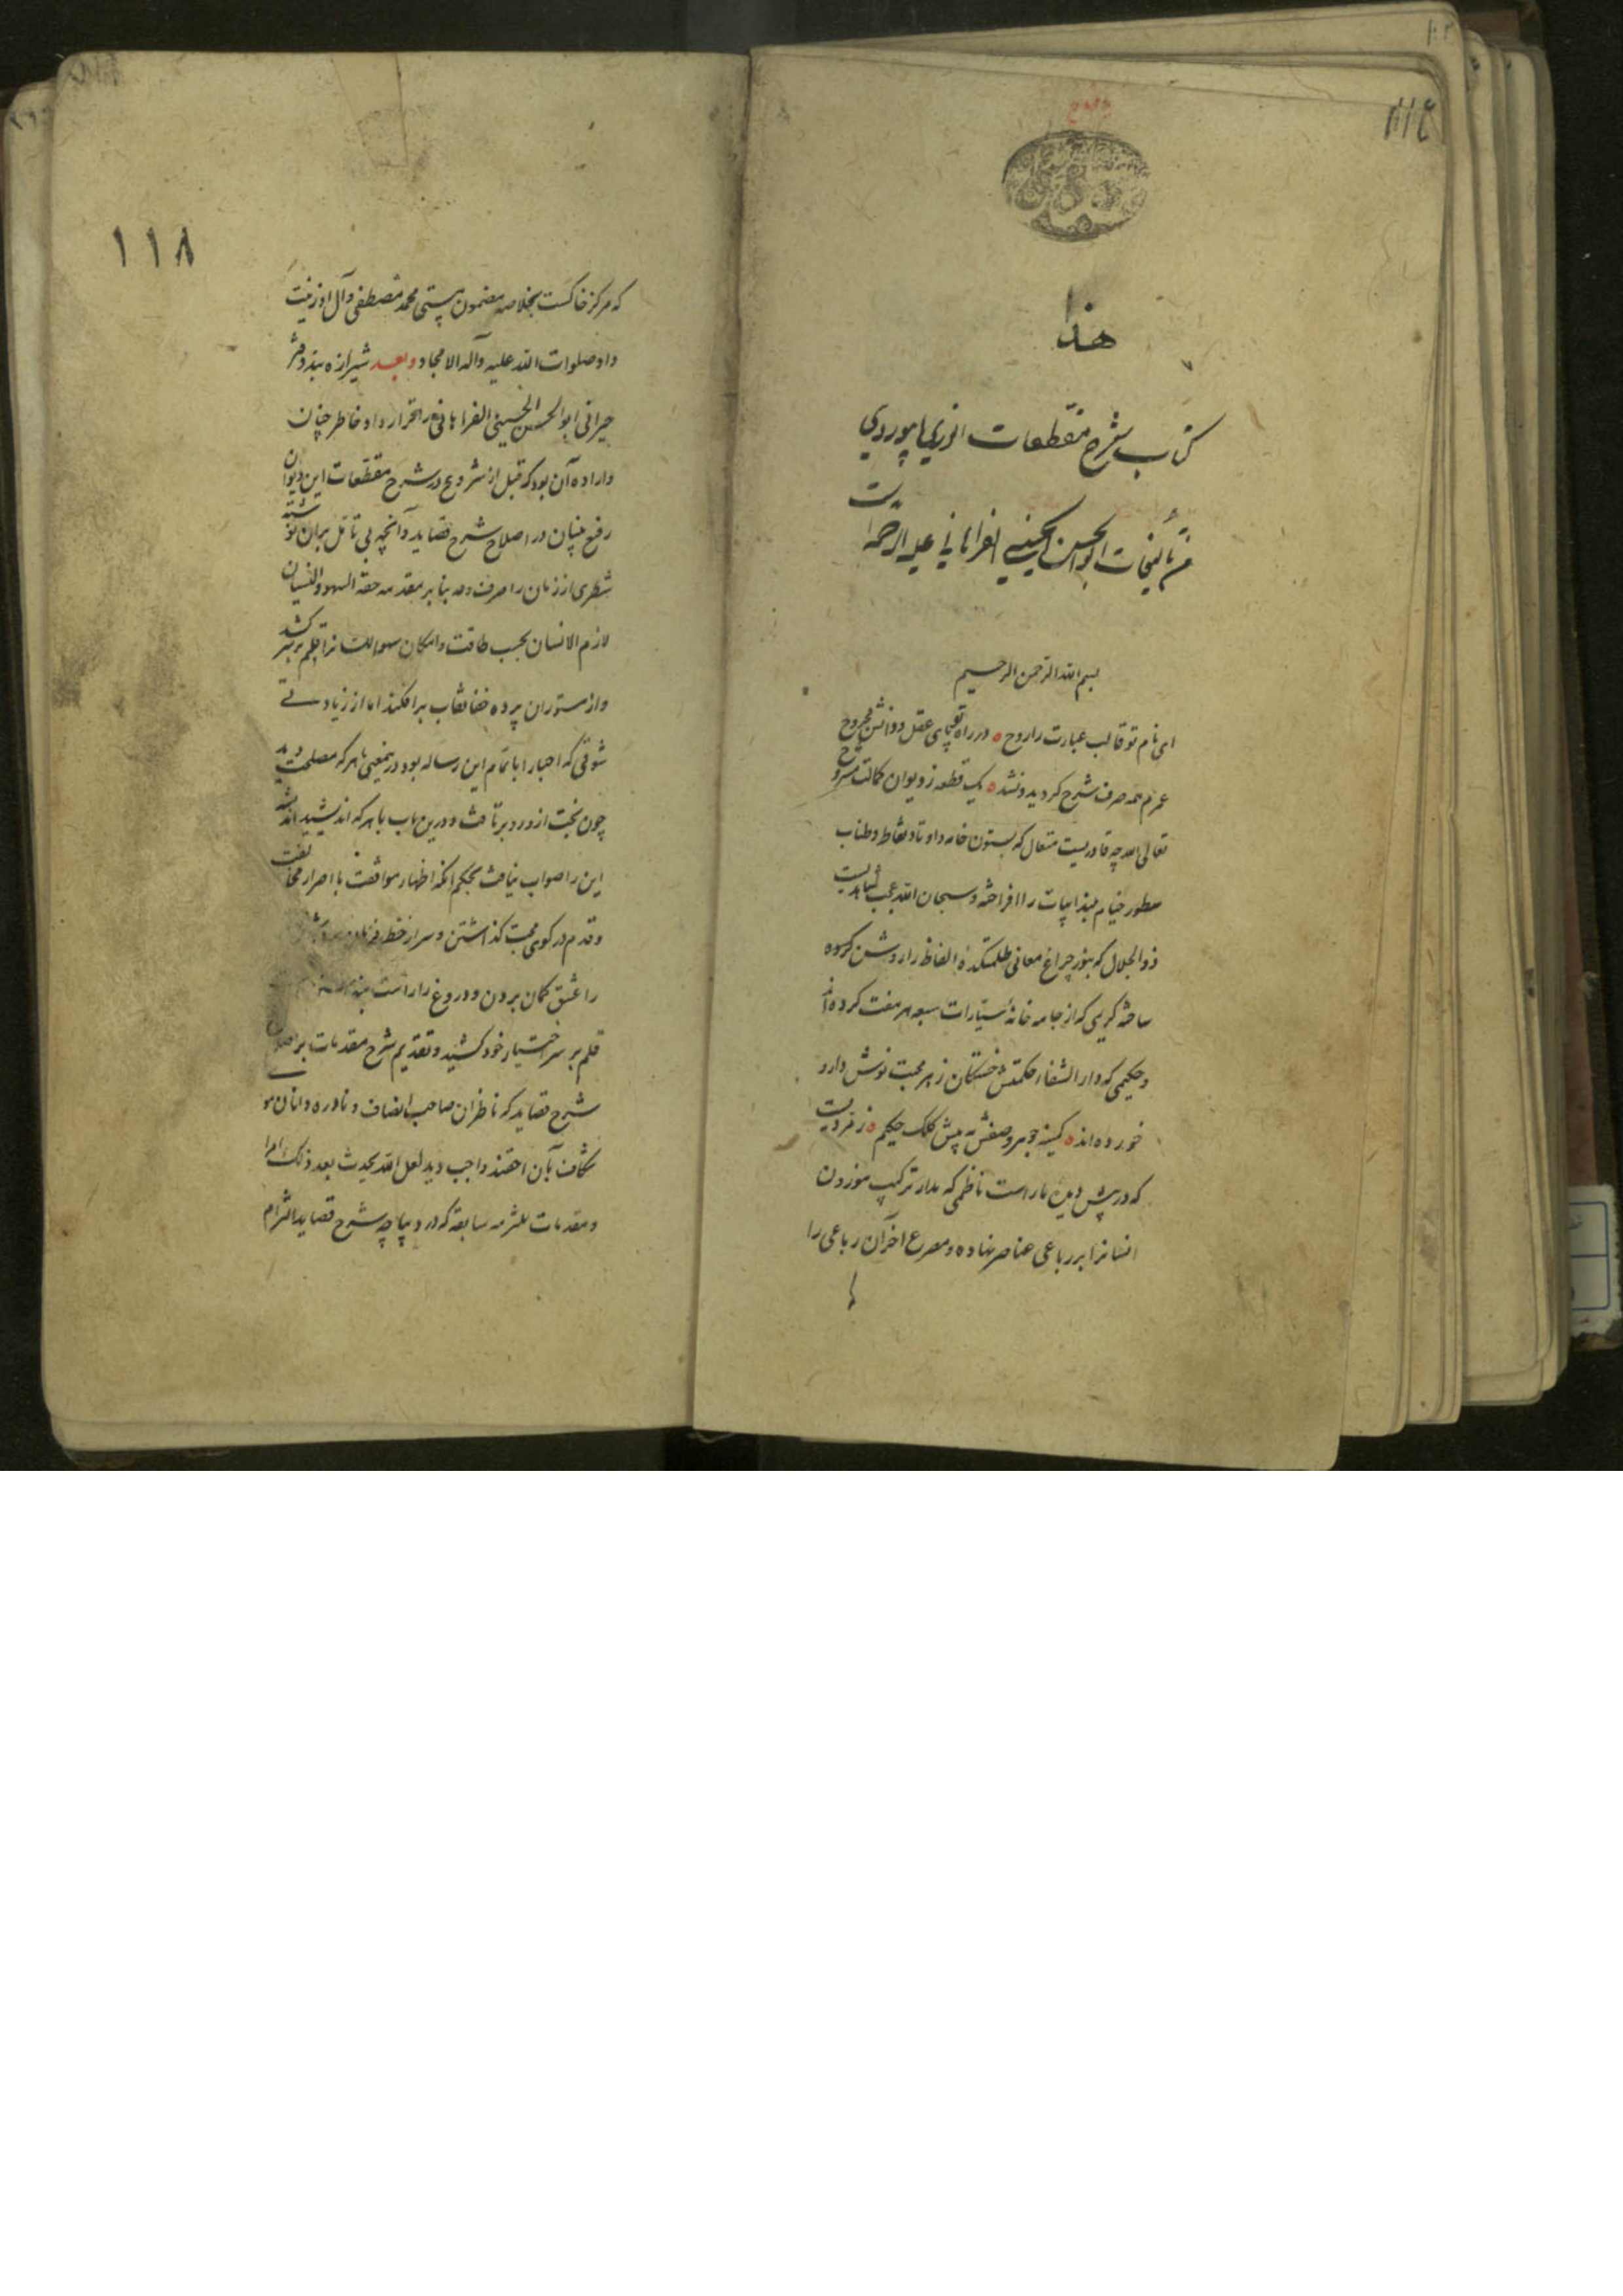 هذا
کتاب شرح مقطعات انوری ابیوردی
من تألیفات ابوالحسن الحسینی الفراهانی علیه الرحمة
بسم الله الرحمن الرحیم
ای نام تو قالب عبارت را روح ه در راه تو پای عقل و دانش مجروح
عمرم همه صرف شرح کردید و نشد ه یک قطعه ز دیوان کمالت مشروح
تعالی الله چه قادریست متعال که بستون خامه و اوتاد نقاط و طناب
سطور خیام ابیات را افراخته و سبحان الله عجب
ذوالجلال که بنور چراغ معانی ظلمتکدهٔ الفاظ را روشن
ساخته کریمی که از جامه خانهٔ سیّارات سبعه هر هفت کرده اند
و حکیمی که دار الشفاء حکمتش خستگان زهر محبت نوش دارو
خورده اند ه کمینه جوهر وصفش به پیش کلک حکیم ه زمردیست
که در پیش دیدهٔ مار است ناظمی که مدار ترکیب موزون
انسانرا بر رباعی عناصر نهاده و مصرع آخر آن رباعی را
۱۱۸
که مرکز خاکست بخلاصه مضمون هستی محمد مصطفی و آل او زینت
داد صلوات الله علیه وآله الامجاد وبعد شیرازه بند دفتر
حیرانی ابوالحسن الحسینی الفراهانی را قرارداد خاطر چنان
و اراده آن بود که قبل از شروع در شرح مقطعات این دیوان
رفیع بنیان در اصلاح شرح قصاید و آنچه بی تأمل بران نوشته
شطری از زمان را صرف نماید بنا بر مقدمه حقه السهو والنسیان
لازم الانسان بحسب طاقت و امکان سهو را قلم بر سر کشد
و از مستوران پرده خفا نقاب برافکند اما از زیادتی
شوقی که احبا را باتمام این رساله بود درینمعنی با هر که مصلحت دید
چون بخت از و رو برتافت و درین باب با هر که اندیشید
این را صواب نیافت بحکم آنکه اظهار موافقت با اصرار مخالفت
و قدم در کوی محبت گذاشتن و سر از خط فرمان
را عشق گمان بردن و دروغ را راست
قلم بر سر اختیار خود کشید و تقدیم شرح مقدمات بر
شرح قصاید که ناظران صاحب انصاف و نادره دانان
واجب دید لعل الله یحدث بعد ذلک امرا
و مقدمات سابقه که در دیباچه شرح قصاید التزام